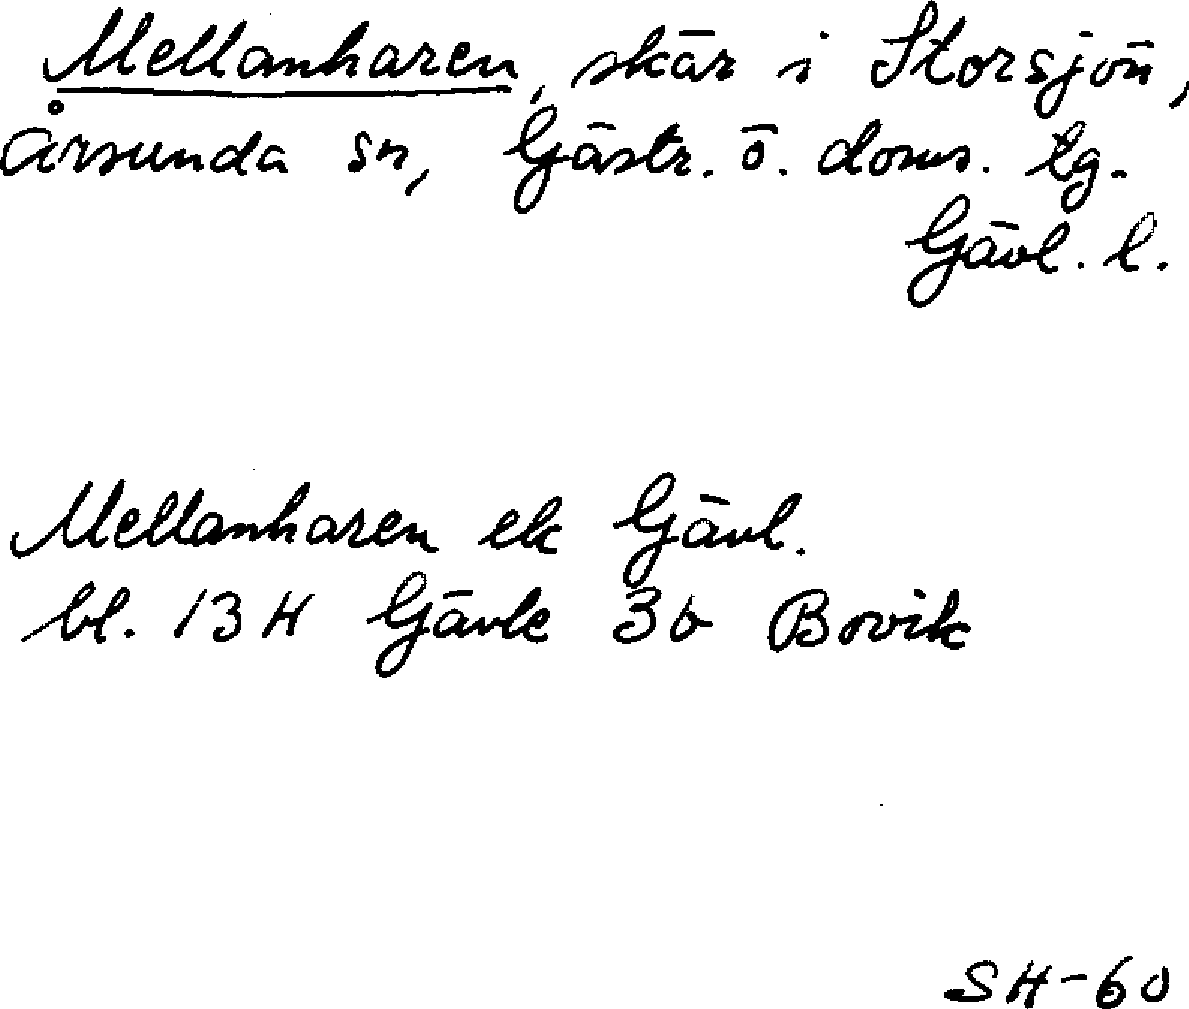 Mellanharen, skär i Storsjön,
Årsunda sn, Gästr. ö. doms. tg.
Gävl. l.
Mellanharen ek Gävl.
bl. 13 H Gävle 3b Bovik
SH-60